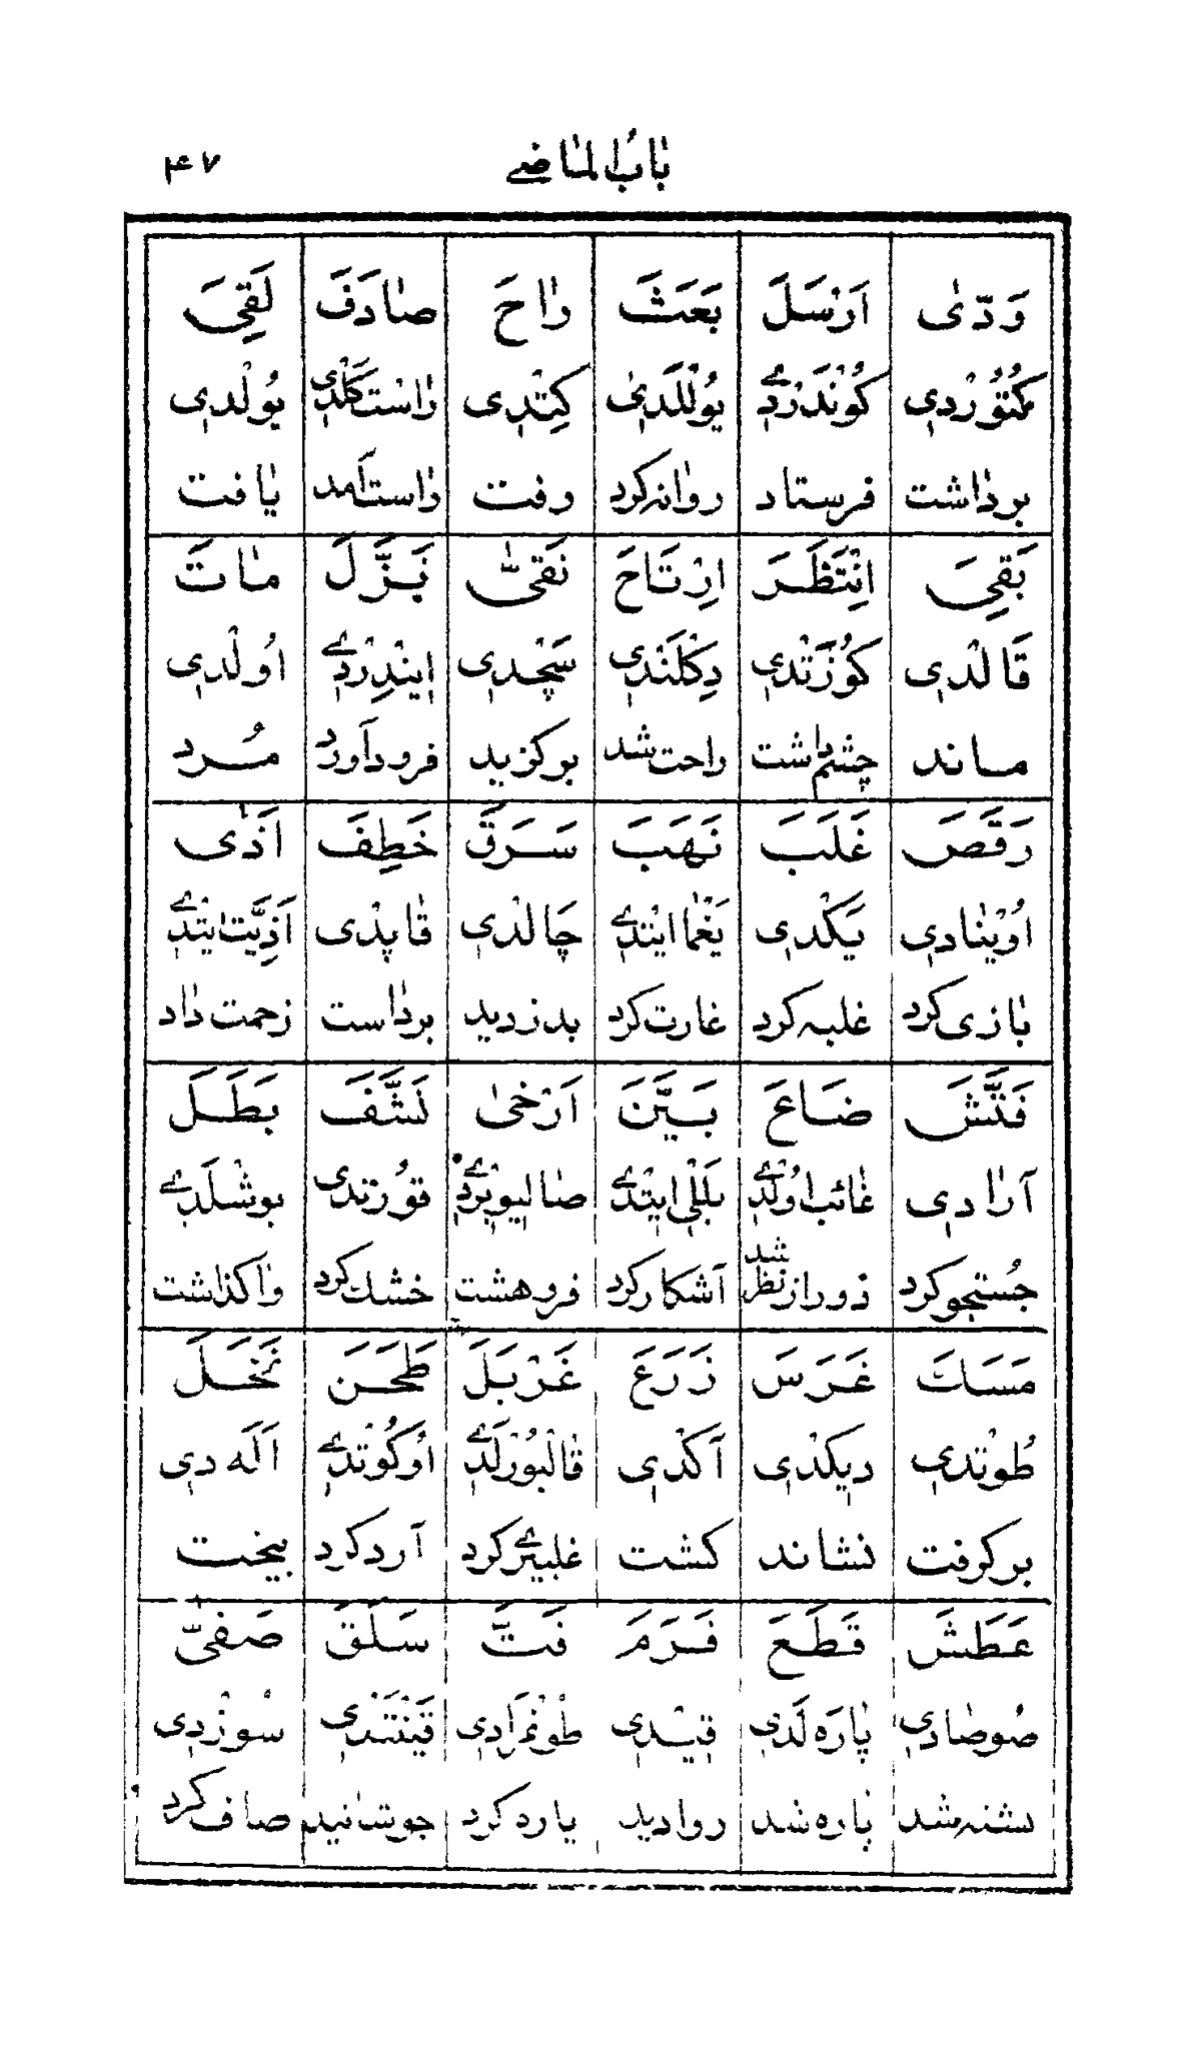 بٰابُ المٰاضے ۴۷
وَدّىٰ اَرْسَلَ بَعَثَ رٰاحَ صٰادَفَ لَقِىَ
كُتُوُرْدىِ كُونْدَرْدىِ يُوللَّدىِ كِتْدىِ رٰاسْت كَلْدىِ بُولْدىِ
برداشت فرستاد روانه كرد رفت راست آمد يٰافت
بَقِىَ اِنْتَظَرَ اِرْتَاحَ نَقىّٰ نَزَّلَ مٰاتَ
قَالْدىِ كُوزَتْدىِ دِكْلَنْدىِ سَچْدىِ ايندِرْدىِ اُولْدىِ
مـاند چشم داشت راحت شد بركزيد فرود آورد مُـرد
رَقَصَ غَلَبَ نَهَبَ سَرَقَ خَطِفَ اَذٰى
اُوْيْنٰادىِ يَكْدىِ يَغْمٰا ايْتْدىِ چَالْدىِ قٰاپْدى اَذِيَّت ايْتْدىِ
بٰازى كرد غلبه كرد غارت كرد بدزديد برداست زحمت دٰاد
فَتَّشَ ضَاعَ بَيَّنَ اَرْخىٰ نَشَّفَ بَطَلَ
آرٰادىِ غٰائب اُولْدىِ بَلْلى ايتْدىِ صٰاليويردىِ قوُرتدى بوشْلَدىِ
جُستجو كرد دور از نظر شد آشكار كرد فرو هشت خشك كرد وٰاكذاشت
مَسَكَ غَرَسَ زَرَعَ غَرْبَلَ طَحَنَ نَخَلَ
طُوتْدىِ دِيكْدىِ آكْدىِ قٰالْبُورْلَدىِ اُوكُوتْدىِ اَلَه دىِ
بركرفت نشاند كشت غلبيرى كرد آرد كرد بيخت
عَطَشَ قَطَعَ فَرَمَ فَتَّ سَلَقَ صَفىّٰ
صُوصٰادىِ پٰارَه لَدىِ قيْدىِ طوُغْرَادىِ قَيْنَتْدىِ سُوزْدىِ
تشنه شد پٰاره شد رواديد پاره كرد جوشٰانيد صاف كرد